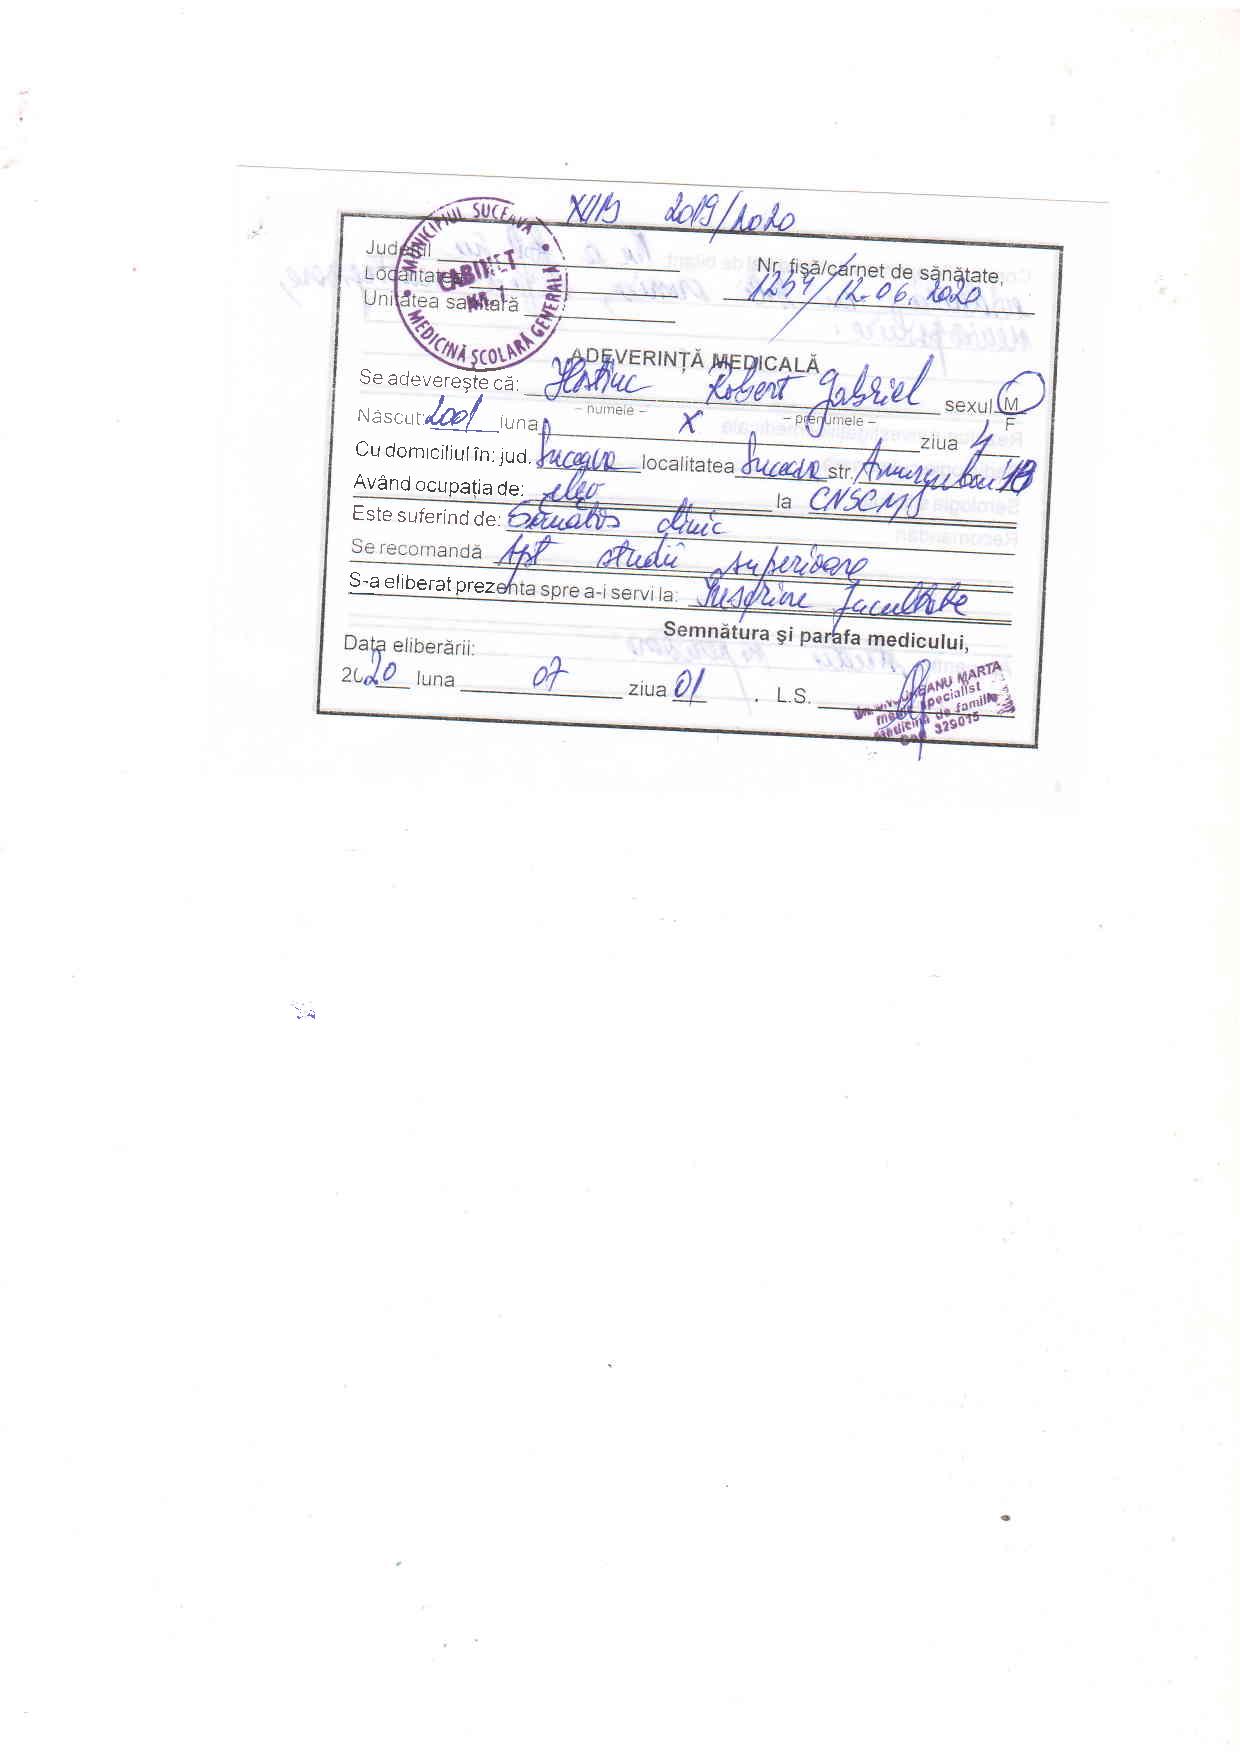 XII B 2019/2020
MUNICIPIUL SUCEAVA
MEDICINĂ ŞCOLARĂ GENERALĂ
CABINET
NR. 1
Județul
Localitatea
Unitatea sanitară
Nr. fişă/carnet de sănătate,
1254/12.06.2020
ADEVERINŢĂ MEDICALĂ
Se adevereşte că: Robert Gabriel sexul M
– numele – – prenumele – F
Născut: 2001 luna X ziua 4
Cu domiciliul în: jud. Suceava localitatea Suceava str.
Având ocupaţia de: elev la CNSCMS
Este suferind de: Sănătos clinic
Se recomandă Apt studii superioare
S-a eliberat prezenta spre a-i servi la: Înscriere facultate
Semnătura şi parafa medicului,
Data eliberării:
2020 luna 07 ziua 01 . L.S.
MARTA
medic specialist
medicină de familie
Cod 329015